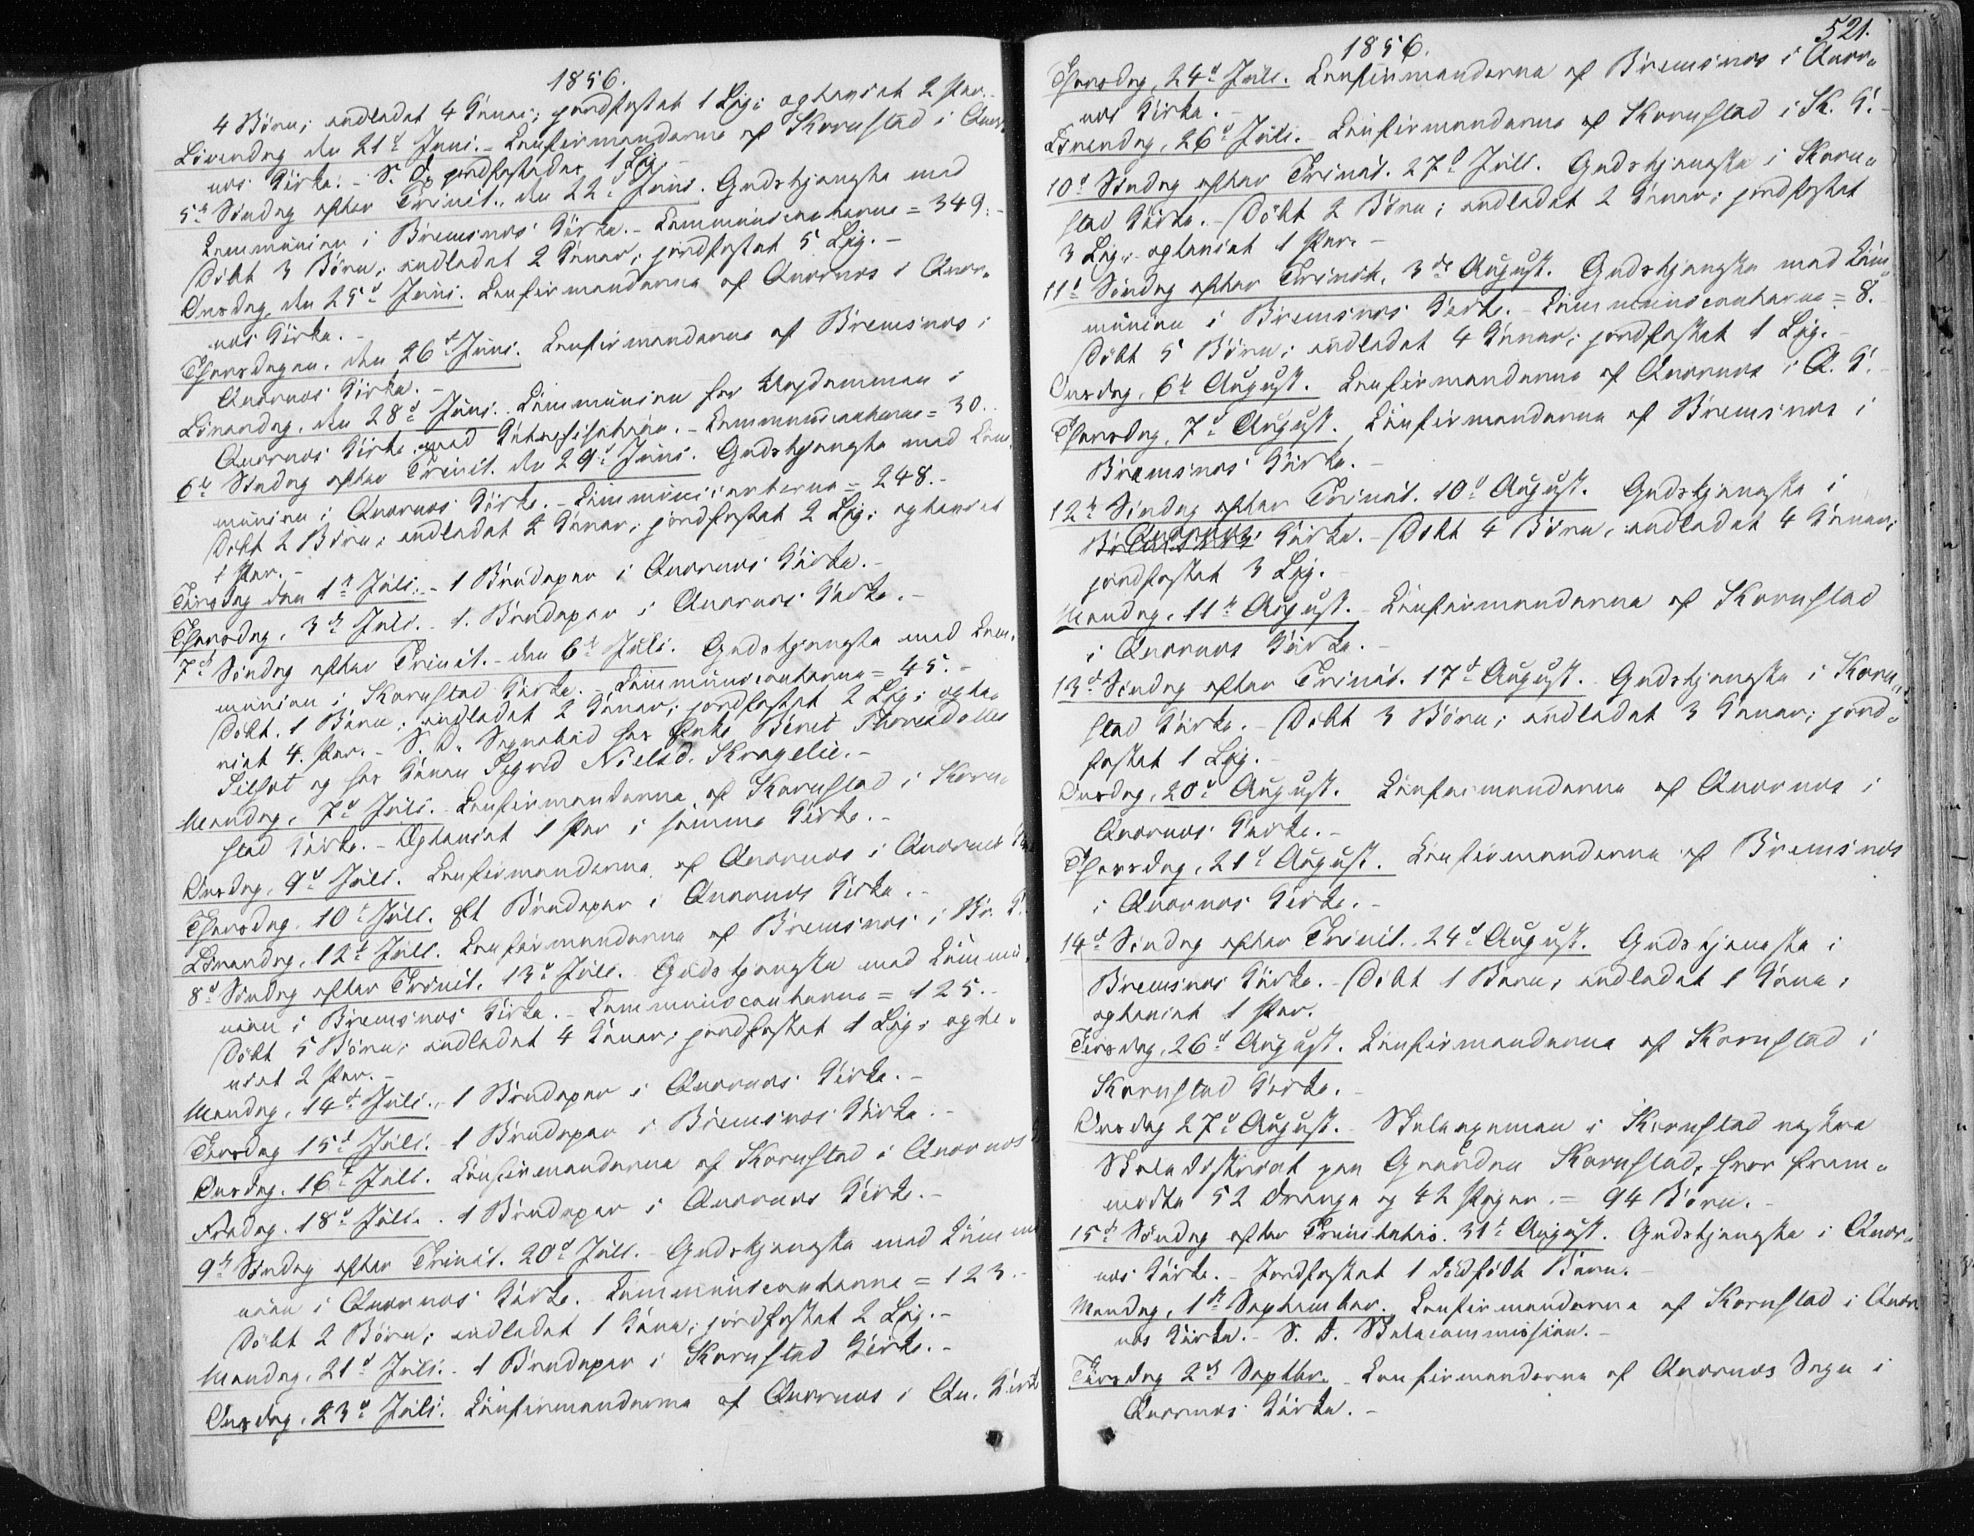 1856.
4 Børn; indledet 4 Koner; jordfæstet 1 Liig; ægteviet 2 Par.
Løverdag den 21d Juni. Confirmanderne af Kornstad i Quær
næs Kirke. - S. D. jordfæstedes 1 Liig.
5te Søndag efter Trinit., den 22d Juni. Gudstjeneste med
Communion i Bremsnæs Kirke. - Communicanterne = 349. -
Døbt 3 Børn; indledet 2 Koner; jordfæstet 5 Liig. -
Onsdag, den 25d Juni. Confirmanderne af Quærnæs i Quær-
næs Kirke. -
Thorsdagen, den 26d Juni. Confirmanderne af Bremsnæs i
Quærnæs Kirke. -
Løverdag, den 28d Juni. Communion for Ungdommen i
Quærnæs Kirke med Catechisation. - Communicanterne = 30.
6te Søndag efter Trinit. den 29d Juni. Gudstjeneste med Com-
munion i Quærnæs Kirke. - Communicanterne = 248. -
Døbt 2 Børn; indledet 2 Koner; jordfæstet 2 Liig; ægteviet
1 Par. -
Tirsdag den 1ste Juli. - 1 Brudepar i Quærnæs Kirke. -
Thorsdag, 3die Juli. 1. Brudepar i Quærnæs Kirke. -
7d Søndag efter Trinit. - den 6te Juli. Gudstjeneste med Com-
munion i Kornstad Kirke. Communicanterne = 45. -
Døbt 1 Barn; indledet 2 Koner; jordfæstet 2 Liig; ægte-
viet 4. Par. - S. D. Sognebud for Enke Beret Thoresdatter
Silset og for Konen Sigrid Nielsd. Kragelie. -
Mandag, 7d Juli. Confirmanderne af Kornstad i Korn-
stad Kirke. - Ægteviet 1 Par i samme Kirke. -
Onsdag, 9d Juli. Confirmanderne af Quærnæs i Quærnæs K
Thorsdag. 10d Juli. Et Brudepar i Quærnæs Kirke. -
Løverdag, 12d Juli. Confirmanderne af Bremsnæs i Br. K.
8d Søndag efter Trinit. 13d Juli. Gudstjeneste med Commu-
nion i Bremsnæs Kirke. - Communicanterne = 125. -
Døbt 5 Børn; indledet 4 Koner; jordfæstet 1 Liig; ægte-
viet 2 Par. -
Mandag, 14d Juli. 1 Brudepar i Quærnæs Kirke. -
Tirsdag 15d Juli. 1 Brudepar i Bremsnæs Kirke. -
Onsdag. 16d Juli. Confirmanderne af Kornstad i Quærnæs
Fredag. 18d Juli. 1 Brudepar i Quærnæs Kirke. -
9de Søndag efter Trinit. 20d Juli. Gudstjeneste med Commu
nion i Quærnæs Kirke. Communicanterne = 123. -
Døbt 2 Børn; indledet 1 Kone; jordfæstet 2 Liig. -
Mandag, 21d Juli. 1 Brudepar i Kornstad Kirke. -
Onsdag, 23d Juli. Confirmanderne af Quærnæs i Qu. Kirke
1856. 521.
Thorsdag, 24d Juli. Confirmanderne af Bremsnæs i Quær-
næs Kirke. -
Løverdag, 26d Juli. Confirmanderne af Kornstad i K. K. -
10d Søndag efter Trinit. 27d Juli. Gudstjeneste i Korn-
stad Kirke. - Døbt 2 Børn; indledet 2 Koner; jordfæstet
3 Liig; ægteviet 1 Par. -
11d Søndag efter Trinit. 3die August. Gudstjeneste med Com-
munion i Bremsnæs Kirke. - Communicanterne = 8.
Døbt 5 Børn; indledet 4 Koner; jordfæstet 1 Liig. -
Onsdag, 6te August. Confirmanderne af Quærnæs i Q. K. -
Thorsdag, 7d August. Confirmanderne af Bremsnæs i
Bremsnæs Kirke. -
12te Søndag efter Trinit. 10d August. Gudstjeneste i
Quærnæs Kirke. - Døbt 4 Børn, indledet 4 Koner;
jordfæstet 3 Liig. -
Mandag, 11te August. Confirmanderne af Kornstad
i Quærnæs Kirke. -
13d Søndag efter Trinit. 17d August. Gudstjeneste i Korn-
stad Kirke. - Døbt 3 Børn; indledet 3 Koner; jord-
fæstet 1 Liig. -
Onsdag, 20d August. Confirmanderne af Quærnæs i
Quærnæs Kirke. -
Thorsdag, 21d August. Confirmanderne af Bremsnæs
i Quærnæs Kirke. -
14d Søndag efter Trinit. 24d August. Gudstjeneste i
Bremsnæs Kirke. - Døbt 1 Barn; indledet 1 Kone;
ægteviet 1 Par.
Tirsdag, 26d August. Confirmanderne af Kornstad i
Kornstad Kirke. -
Onsdag 27d August. Skoleexamen i Kornstad
Skoledistrict paa Gaarden Kornstad, hvor frem-
mødte 52 Drenge og 42 Piger. = 94 Børn. -
15de Søndag efter Trinitatis. 31te August. Gudstjeneste i Quær-
næs Kirke. - Jordfæstet 1 dødfødt Barn. -
Mandag, 1ste September. Confirmanderne af Kornstad i Quær
næs Kirke. - S. D. Skolecommission. -
Tirsdag 2den Septbr. Confirmanderne af Quærnæs Sogn i
Quærnæs Kirke. -